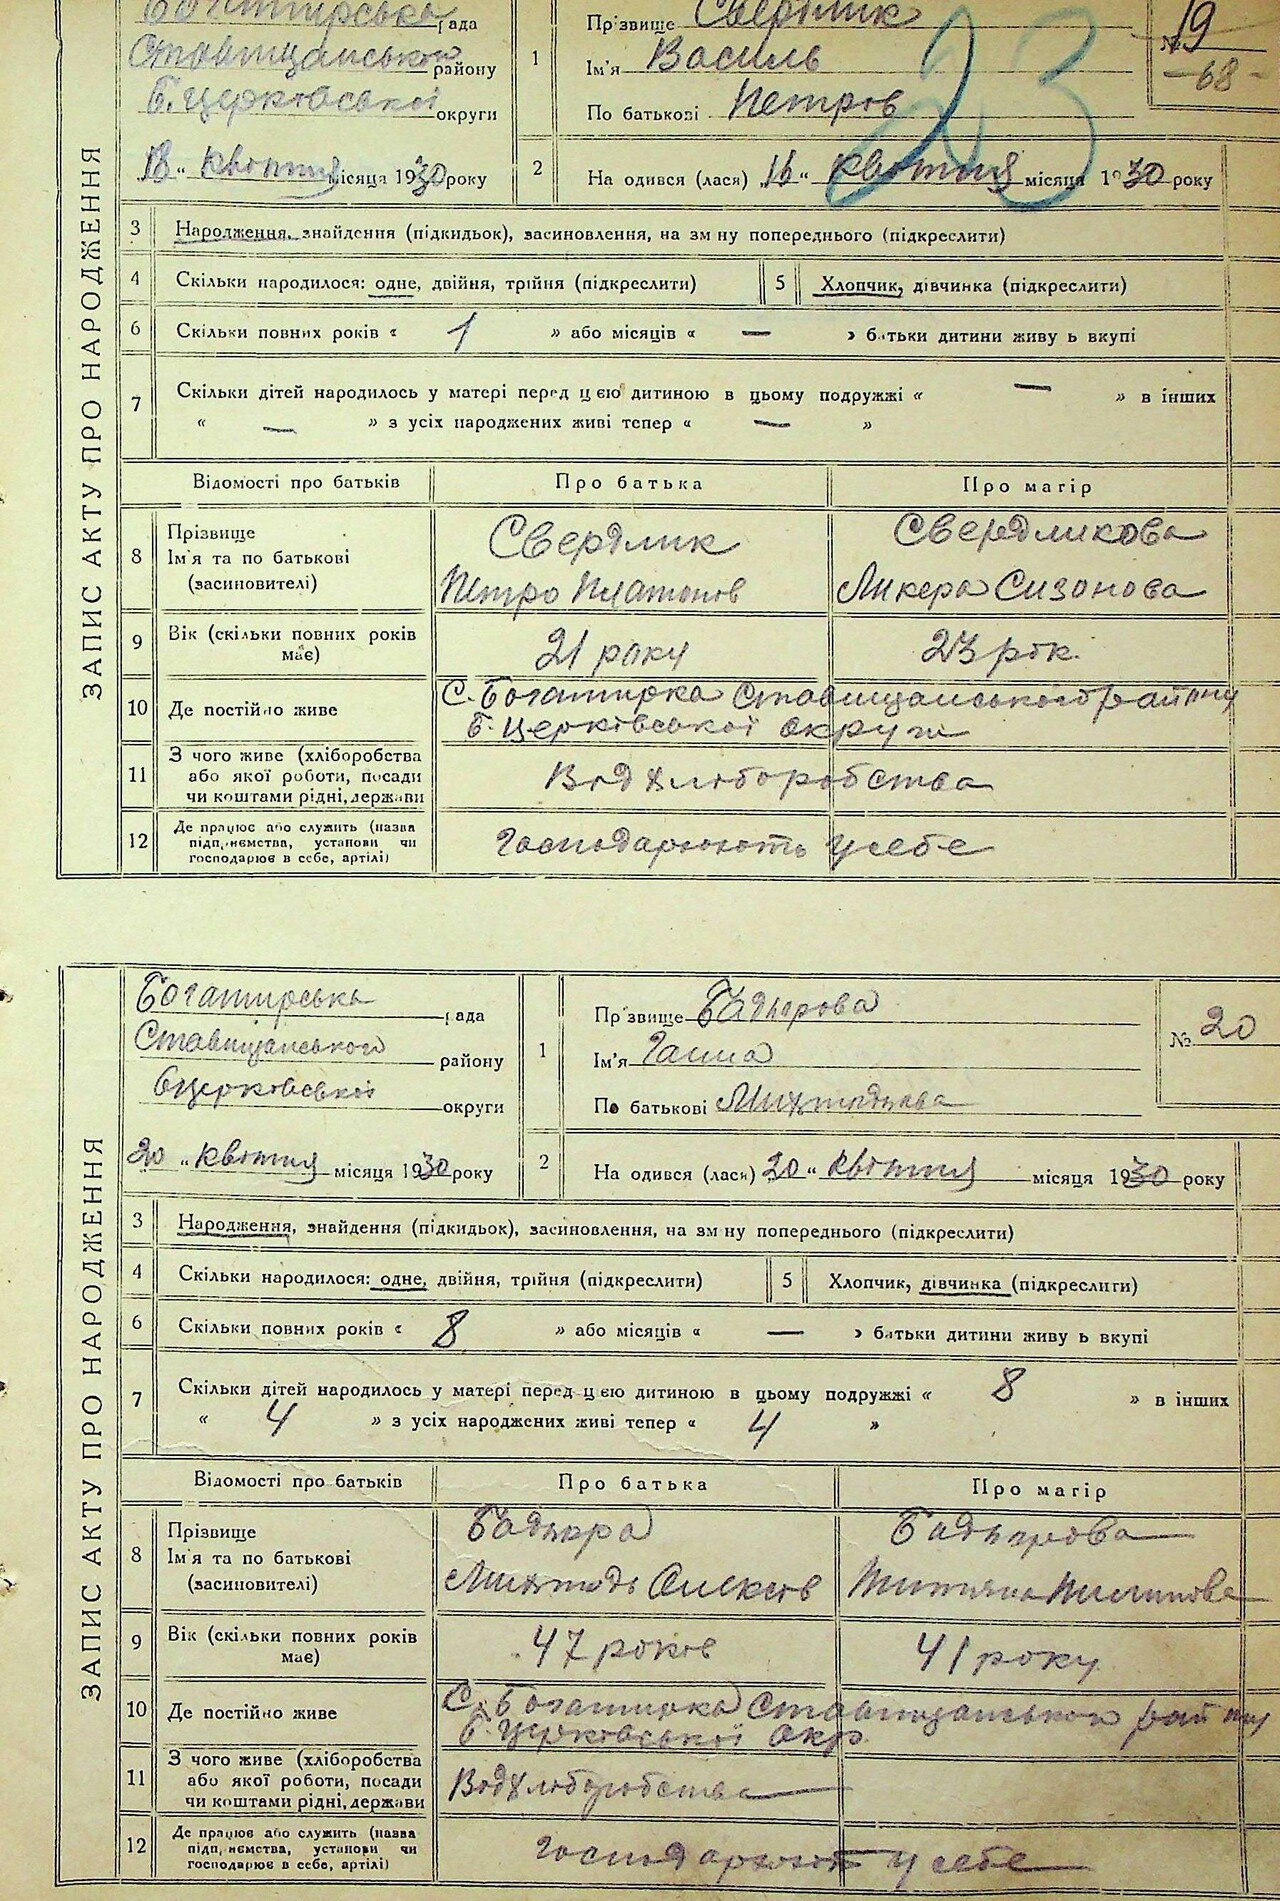 Богатирська рада
Ставищанського району
Б.Церковської округи
18 " квітня місяця 1930 року
1
Пр звище Свердлик
Ім'я Василь
По батькові Петров
№ 19
-68-
23
2
На одився (лася) „16 " квітня місяця 1930 року
ЗАПИС АКТУ ПРО НАРОДЖЕННЯ
3 Народження, знайдення (підкидьок), засиновлення, на зм ну попереднього (підкреслити)
4 Скільки народилося: одне, двійня, трійня (підкреслити) 5 Хлопчик, дівчинка (підкреслити)
6 Скільки повних років « 1 » або місяців « — » батьки дитини живу ь вкупі
7 Скільки дітей народилось у матері перед ц єю дитиною в цьому подружжі « — » в інших
« — » з усіх народжених живі тепер « — »
Відомості про батьків Про батька Про матір
8 Прізвище Свердлик Свердликова
Ім'я та по батькові
(засиновителі) Петро Платонов Ликера Сизонова
9 Вік (скільки повних років має) 21 року 23 рок.
10 Де постійно живе С. Богатирка Ставищанського району
Б. Церківської округи
11 З чого живе (хліборобства
або якої роботи, посади Від хліборобства
чи коштами рідні, держави
12 Де працює або служить (назва
підп, иємства, установи чи Господарюють у себе
господарює в себе, артілі)
ЗАПИС АКТУ ПРО НАРОДЖЕННЯ
Богатирська рада
Ставищанського району
Бцерковської округи
20 " квітня місяця 1930 року
1
Пр звище
Ім'я Ганна
По батькові
№ 20
2
На одився (лася) 20 " квітня місяця 1930 року
3 Народження, знайдення (підкидьок), засиновлення, на зм ну попереднього (підкреслити)
4 Скільки народилося: одне, двійня, трійня (підкреслити) 5 Хлопчик, дівчинка (підкреслити)
6 Скільки повних років « 8 » або місяців « — » батьки дитини живу ь вкупі
7 Скільки дітей народилось у матері перед ц єю дитиною в цьому подружжі « 8 » в інших
« 4 » з усіх народжених живі тепер « 4 »
Відомості про батьків Про батька Про матір
8 Прізвище
Ім'я та по батькові
(засиновителі)
9 Вік (скільки повних років має) 47 років 41 року
10 Де постійно живе С. Богатирка Ставищанського району
Б. Церковської окр.
11 З чого живе (хліборобства
або якої роботи, посади Від хліборобства
чи коштами рідні, держави
12 Де працює або служить (назва
підп, иємства, установи чи Господарюють у себе
господарює в себе, артілі)